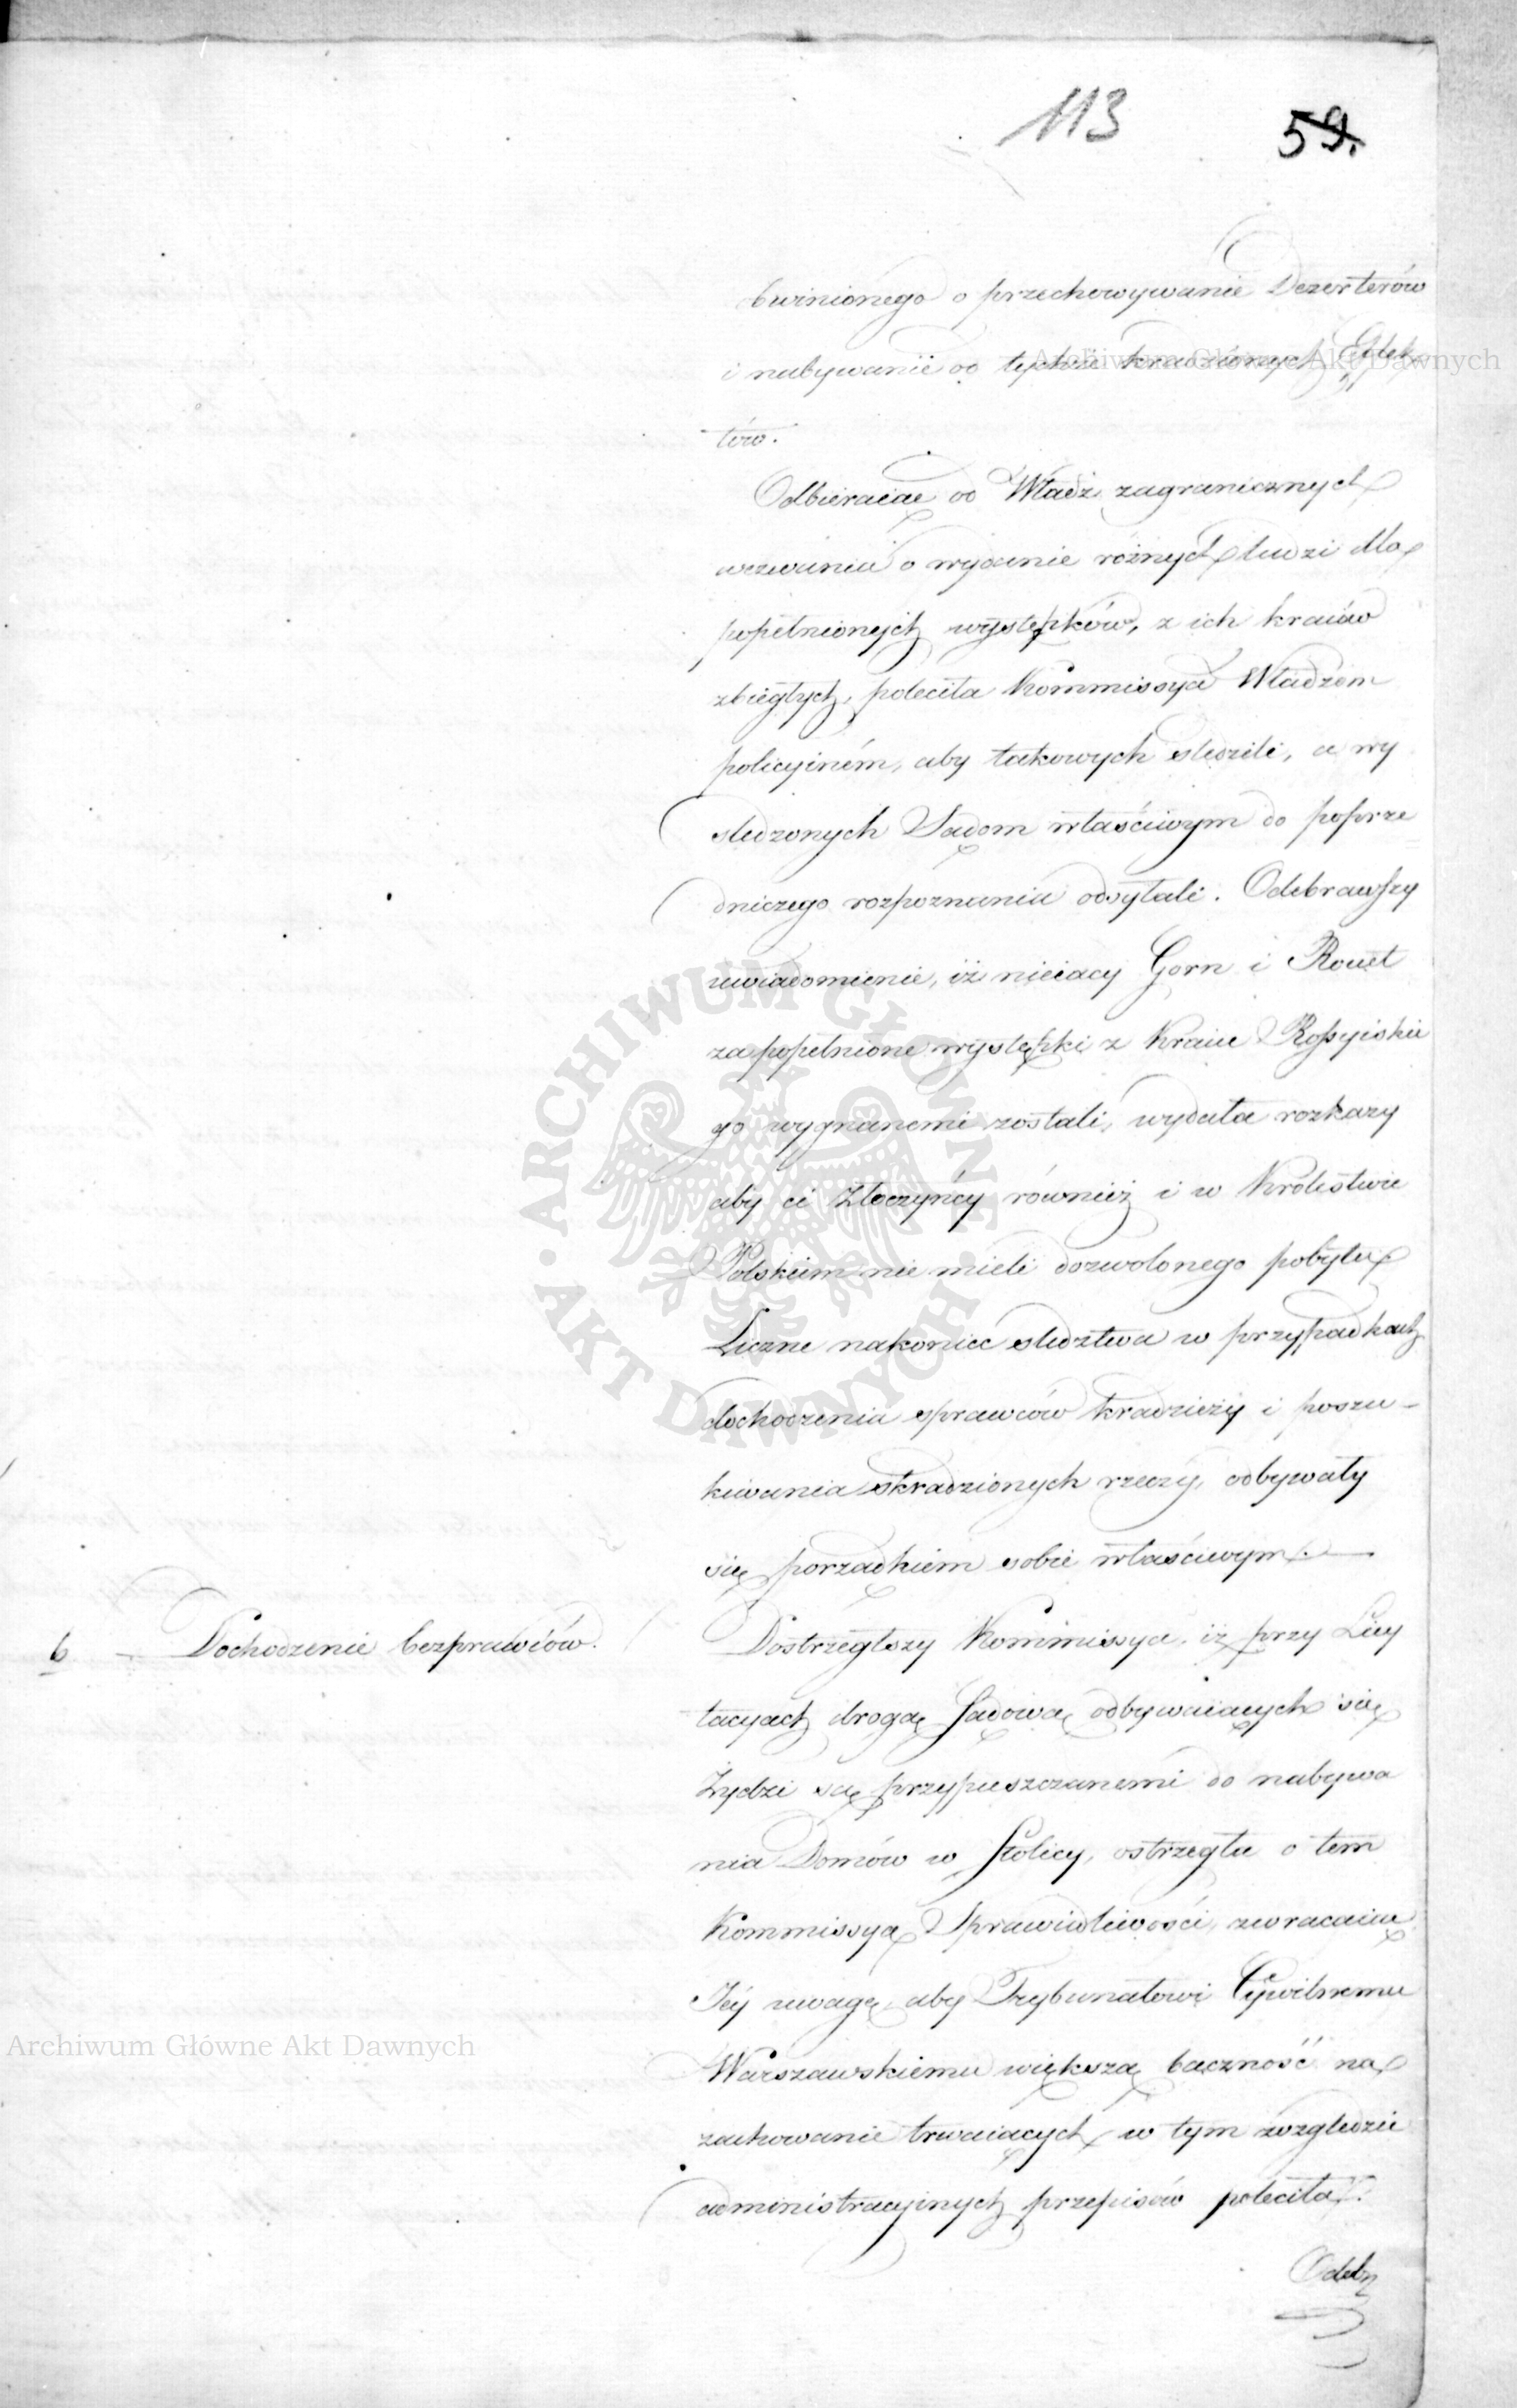 113
59.
bwinionego o przechowywanie Dezerterów
i nabywanie od tychże kradzionych Effek
tów.
Odbieraiąc od Władz zagranicznych
wezwania o wydanie różnych ludzi dla
popełnionych występków, z ich kraiów
zbiegłych, poleciła Kommissya Władzom
policyiném, aby takowych sledzili, a wy
sledzonych Sądom właściwym do poprze
dniczego rozpoznania odsyłali. Odebrawszy
uwiadomienie, iż nieiacy Gorn i Rouet
za popełnione występki z Kraiu Rossyiskie
go wygnanemi zostali, wydała rozkazy
aby ci złoczyńcy również i w Królestwie
Polskiem nie mieli dozwolonego pobytu.
Liczne nakoniec sledztwa w przypadkach
dochodzenia sprawców kradzieży i poszu-
kiwania skradzionych rzeczy, odbywały
się porządkiem sobie właściwym.
6 - Dochodzenie bezprawiów.
Dostrzegłszy Kommissya, iż przy Licy
tacyach drogą Sądową odbywaiących się
Żydzi są przypuszczanemi do nabywa
nia Domów w Stolicy, ostrzegła o tem
Kommissyą Sprawiedliwości, zwracaiąc
Jéy uwagę, aby Trybunałowi Cywilnemu
Warszawskiemu większą baczność na
zachowanie trwaiących w tym względzie
administracyinych przepisów poleciła.
Odeb
Archiwum Główne Akt Dawnych
Archiwum Główne Akt Dawnych
ARCHIWUM GŁÓWNE · AKT DAWNYCH ·